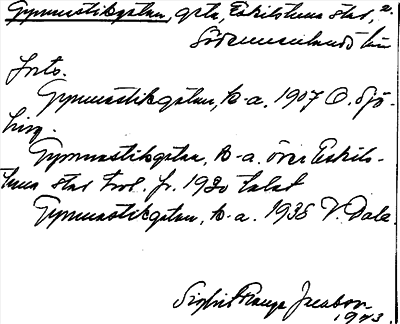 Gymnastikgatan, gata, Eskilstuna stad,
Södermanlands län
Forts.
Gymnastikgatan, k-a. 1907 O. Sjö-
berg.
Gymnastikgatan, k-a. över Eskils-
tuna stad trol. fr. 1920 talet
Gymnastikgatan, k-a. 1935 V. Dale.
1943.